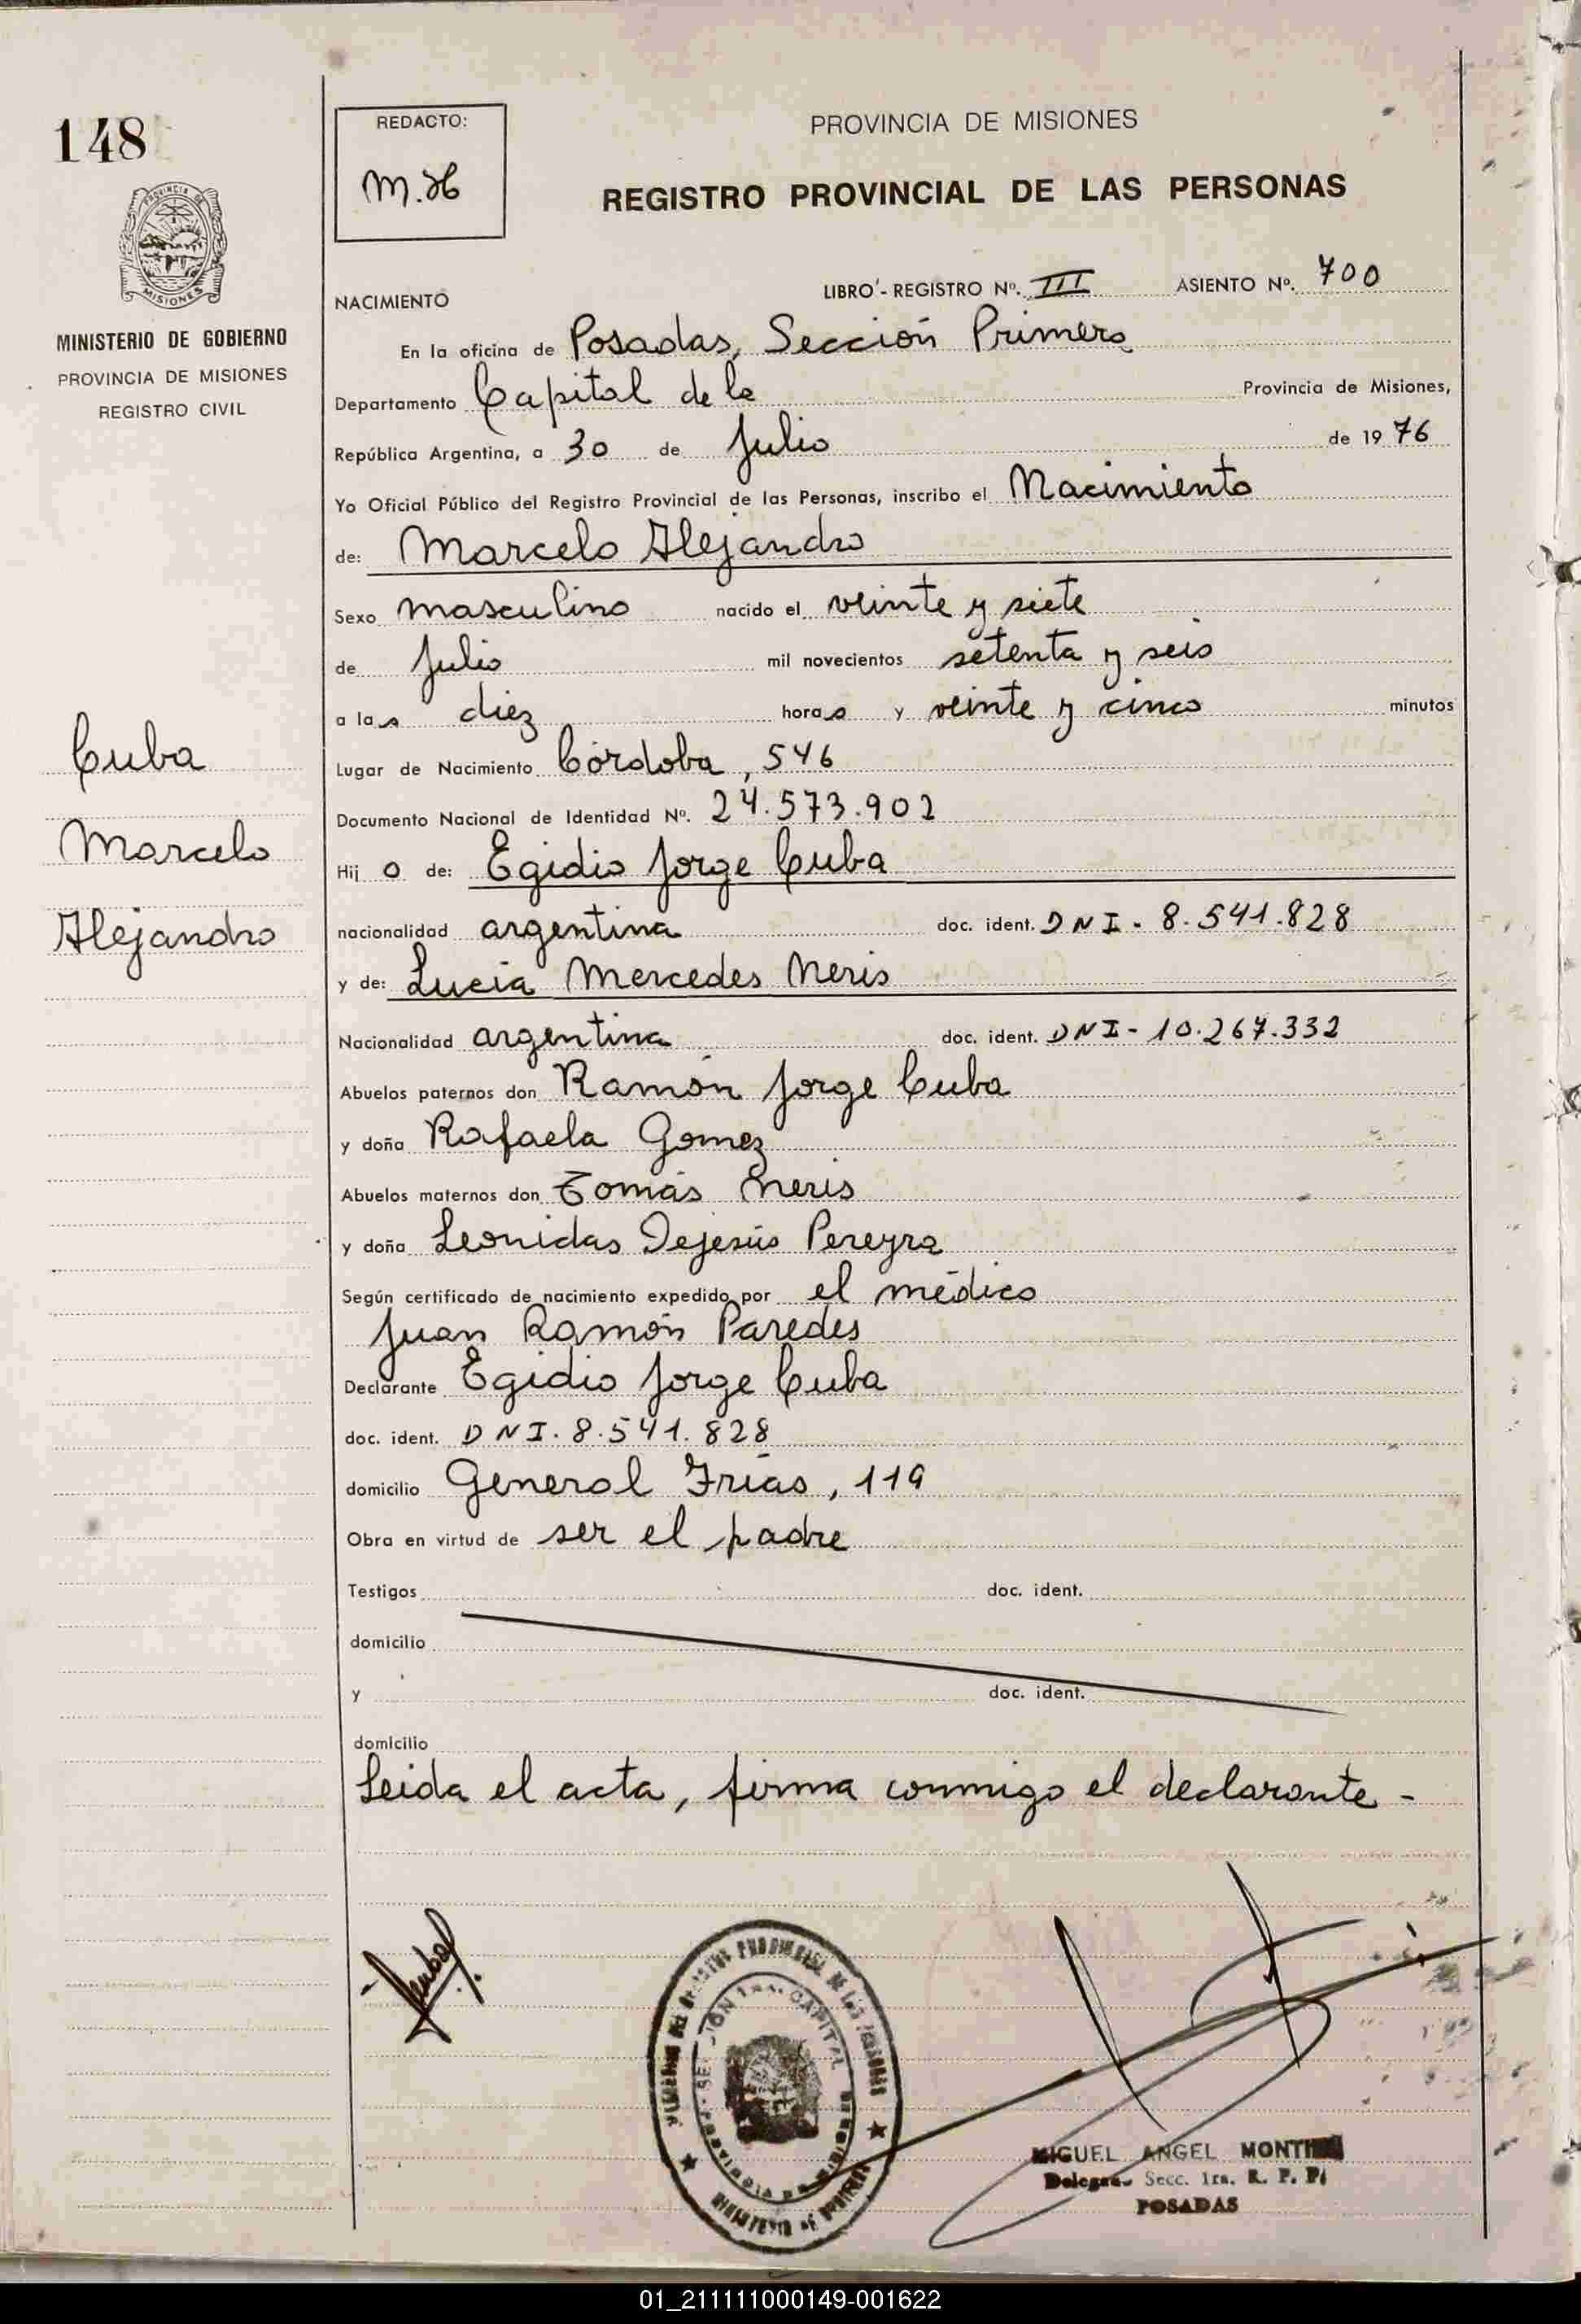 148
REDACTO:
M.H
PROVINCIA DE MISIONES
REGISTRO PROVINCIAL DE LAS PERSONAS
MISIONES
MINISTERIO DE GOBIERNO
PROVINCIA DE MISIONES
REGISTRO CIVIL
NACIMIENTO LIBRO - REGISTRO Nº. III ASIENTO Nº. 700
En la oficina de Posadas, Sección Primera
Departamento Capital de la Provincia de Misiones,
República Argentina, a 30 de Julio de 1976
Yo Oficial Público del Registro Provincial de las Personas, inscribo el Nacimiento
de: Marcelo Alejandro
Sexo masculino nacido el veinte y siete
de Julio mil novecientos setenta y seis
a las diez horas y veinte y cinco minutos
Lugar de Nacimiento Córdoba, 546
Documento Nacional de Identidad Nº. 24.573.902
Hijo de: Egidio Jorge Cuba
nacionalidad argentina doc. ident. DNI - 8.541.828
y de: Lucia Mercedes Neris
Nacionalidad argentina doc. ident. DNI - 10.267.332
Abuelos paternos don Ramón Jorge Cuba
y doña Rafaela Gomez
Abuelos maternos don Tomás Neris
y doña Leonidas Dejesús Pereyra
Según certificado de nacimiento expedido por el médico
Juan Ramón Paredes
Declarante Egidio Jorge Cuba
doc. ident. DNI. 8.541.828
domicilio General Frías, 119
Obra en virtud de ser el padre
Testigos doc. ident.
domicilio
y doc. ident.
domicilio
Leida el acta, firma conmigo el declarante -
Cuba
Marcelo
Alejandro
MIGUEL ANGEL
Secc. 1ra. R. P. P.
POSADAS
01_211111000149-001622